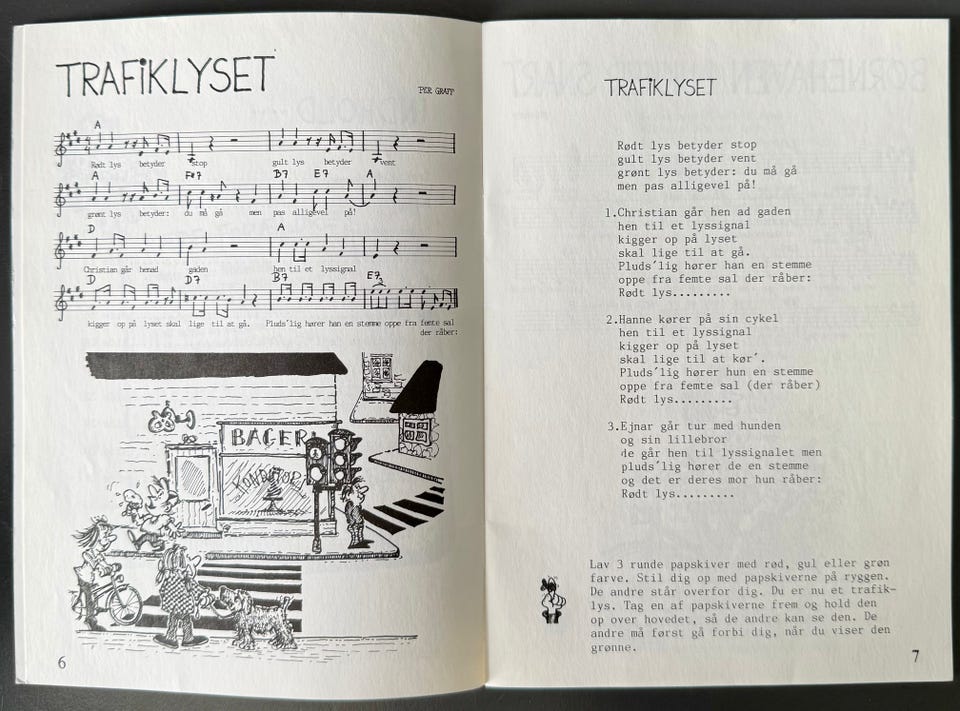 TRAFIKLYSET
PER GRAFF
A
Rødt lys betyder stop gult lys betyder vent
A F#7 B7 E7 A
grønt lys betyder: du må gå men pas alligevel på!
D A
Christian går henad gaden hen til et lyssignal
D D7 B7 E7
3
kigger op på lyset skal lige til at gå. Pluds'lig hører han en stemme oppe fra femte sal
der råber:
BAGER
KONDITOR
6
TRAFIKLYSET
Rødt lys betyder stop
gult lys betyder vent
grønt lys betyder: du må gå
men pas alligevel på!
1.Christian går hen ad gaden
hen til et lyssignal
kigger op på lyset
skal lige til at gå.
Pluds´lig hører han en stemme
oppe fra femte sal der råber:
Rødt lys.........
2.Hanne kører på sin cykel
hen til et lyssignal
kigger op på lyset
skal lige til at kør´.
Pluds´lig hører hun en stemme
oppe fra femte sal (der råber)
Rødt lys.........
3.Ejnar går tur med hunden
og sin lillebror
de går hen til lyssignalet men
pluds´lig hører de en stemme
og det er deres mor hun råber:
Rødt lys.........
Lav 3 runde papskiver med rød, gul eller grøn
farve. Stil dig op med papskiverne på ryggen.
De andre står overfor dig. Du er nu et trafik-
lys. Tag en af papskiverne frem og hold den
op over hovedet, så de andre kan se den. De
andre må først gå forbi dig, når du viser den
grønne.
7